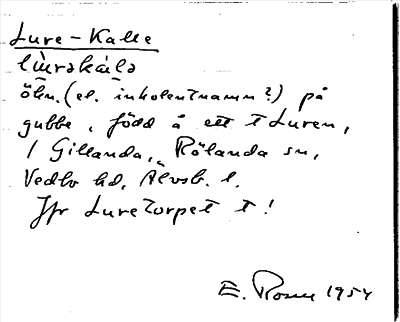 Lure-Kalle
lùrəkàlə
ökn. (el. inkolentnamn?) på
gubbe, född å ett t Luren,
/ Gillanda, Rölanda sn,
Vedbo hd, Älvsb. l.
Jfr Luretorpet t!
E. Rosen 1954